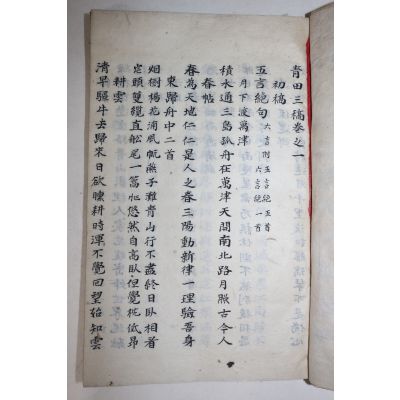 青田三稿卷之一
初稿
五言絶句
月下渡萬津
積水通三島孤舟在萬津天開南北路月照古今人
春帖
春為天地仁仁是人之春三陽動新律一理驗吾身
東歸舟中二首
烟樹楊花浦風帆燕子灘青山行不盡終日臥相看
定頭雙纜直船尾一篙 悠然自高臥但覺枕低昂
耕雲
清早驅牛去歸來日欲曛耕時渾不覺回望始知雲